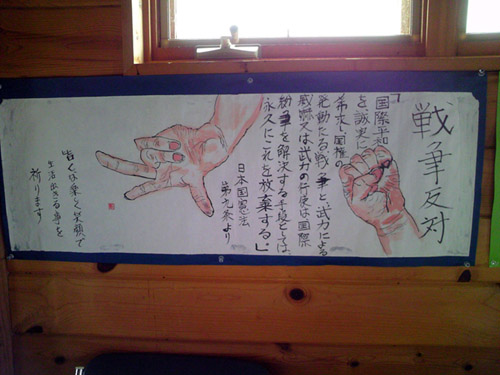 戦争反対
「国際平和
を誠実に
希求し国権の
発動たる戦争と、武力による
威嚇又は武力の行使は国際
紛争を解決する手段としては
永久にこれを放棄する。」
日本国憲法
第九条より
楽しく笑顔で
生活出来る事を
祈ります